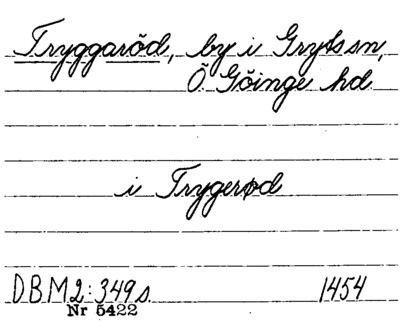 Tryggaröd, by i Grytssn,
Ö Göinge hd
i Trygerød
DBM2:349 s 1454
Nr 5422